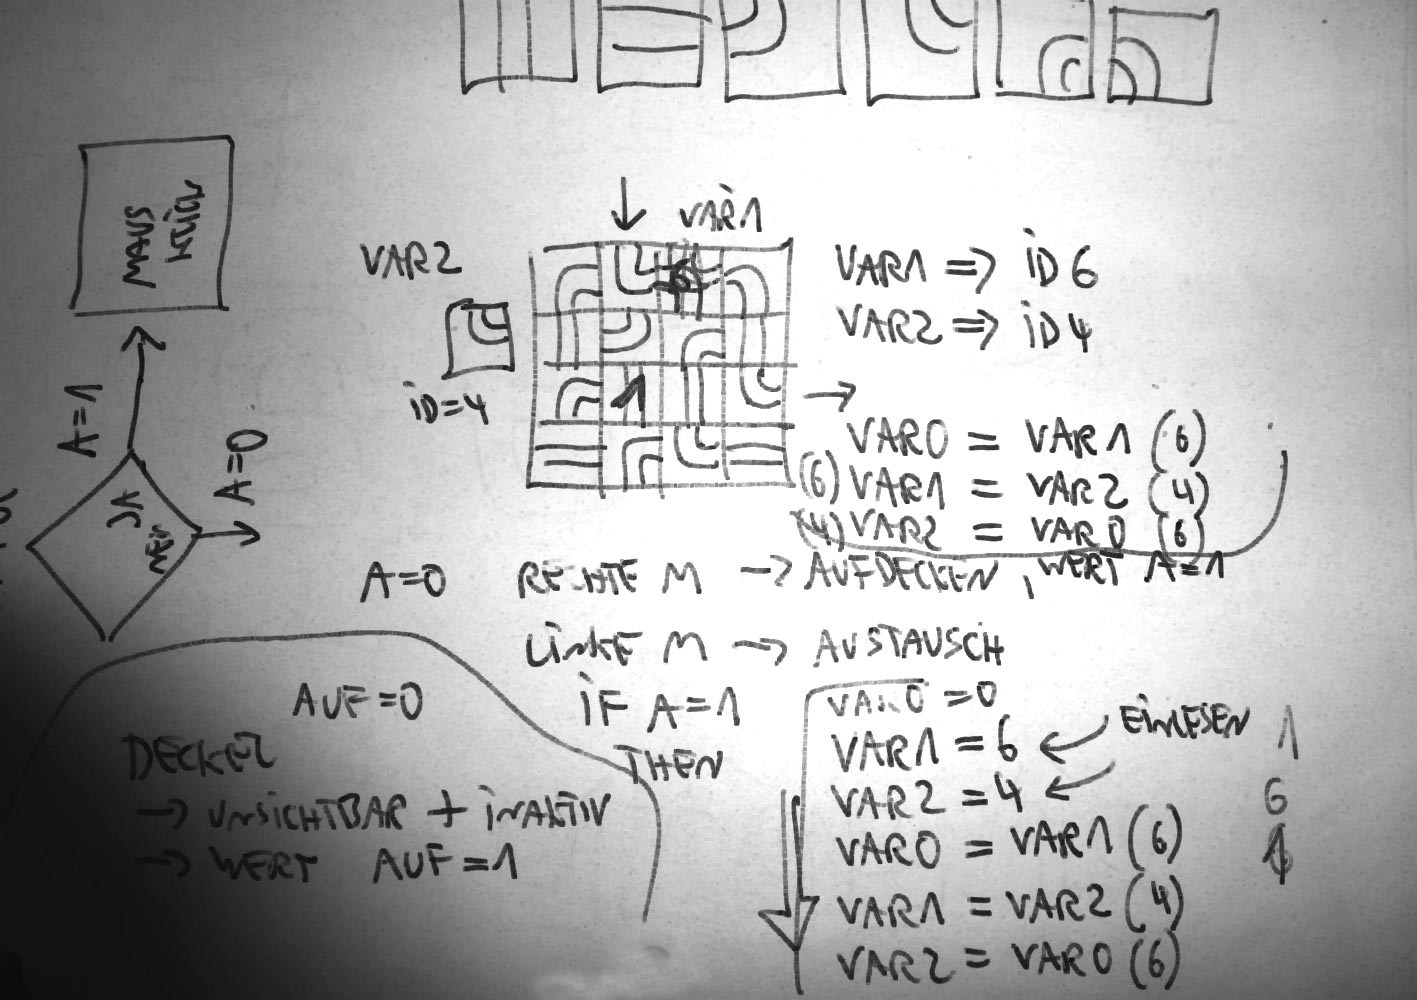 MAUS
VAR1
VAR2
iD=4
VAR1 => iD 6
VAR2 => iD 4
VAR0 = VAR1 (6)
(6) VAR1 = VAR2 (4)
(4) VAR2 = VAR0 (6)
A=1
A=0
JA
NEiN
1
A=0 RECHTE M -> AUFDECKEN, WERT A=1
LiNKE M -> AUSTAUSCH
iF A=1
THEN
AUF=0
DECKEL
-> UNSiCHTBAR + iNAKTiV
-> WERT AUF=1
VAR0 =0
VAR1 =6
EiNLESEN
VAR2 =4
VAR0 = VAR1 (6)
VAR1 = VAR2 (4)
VAR2 = VAR0 (6)
1
6